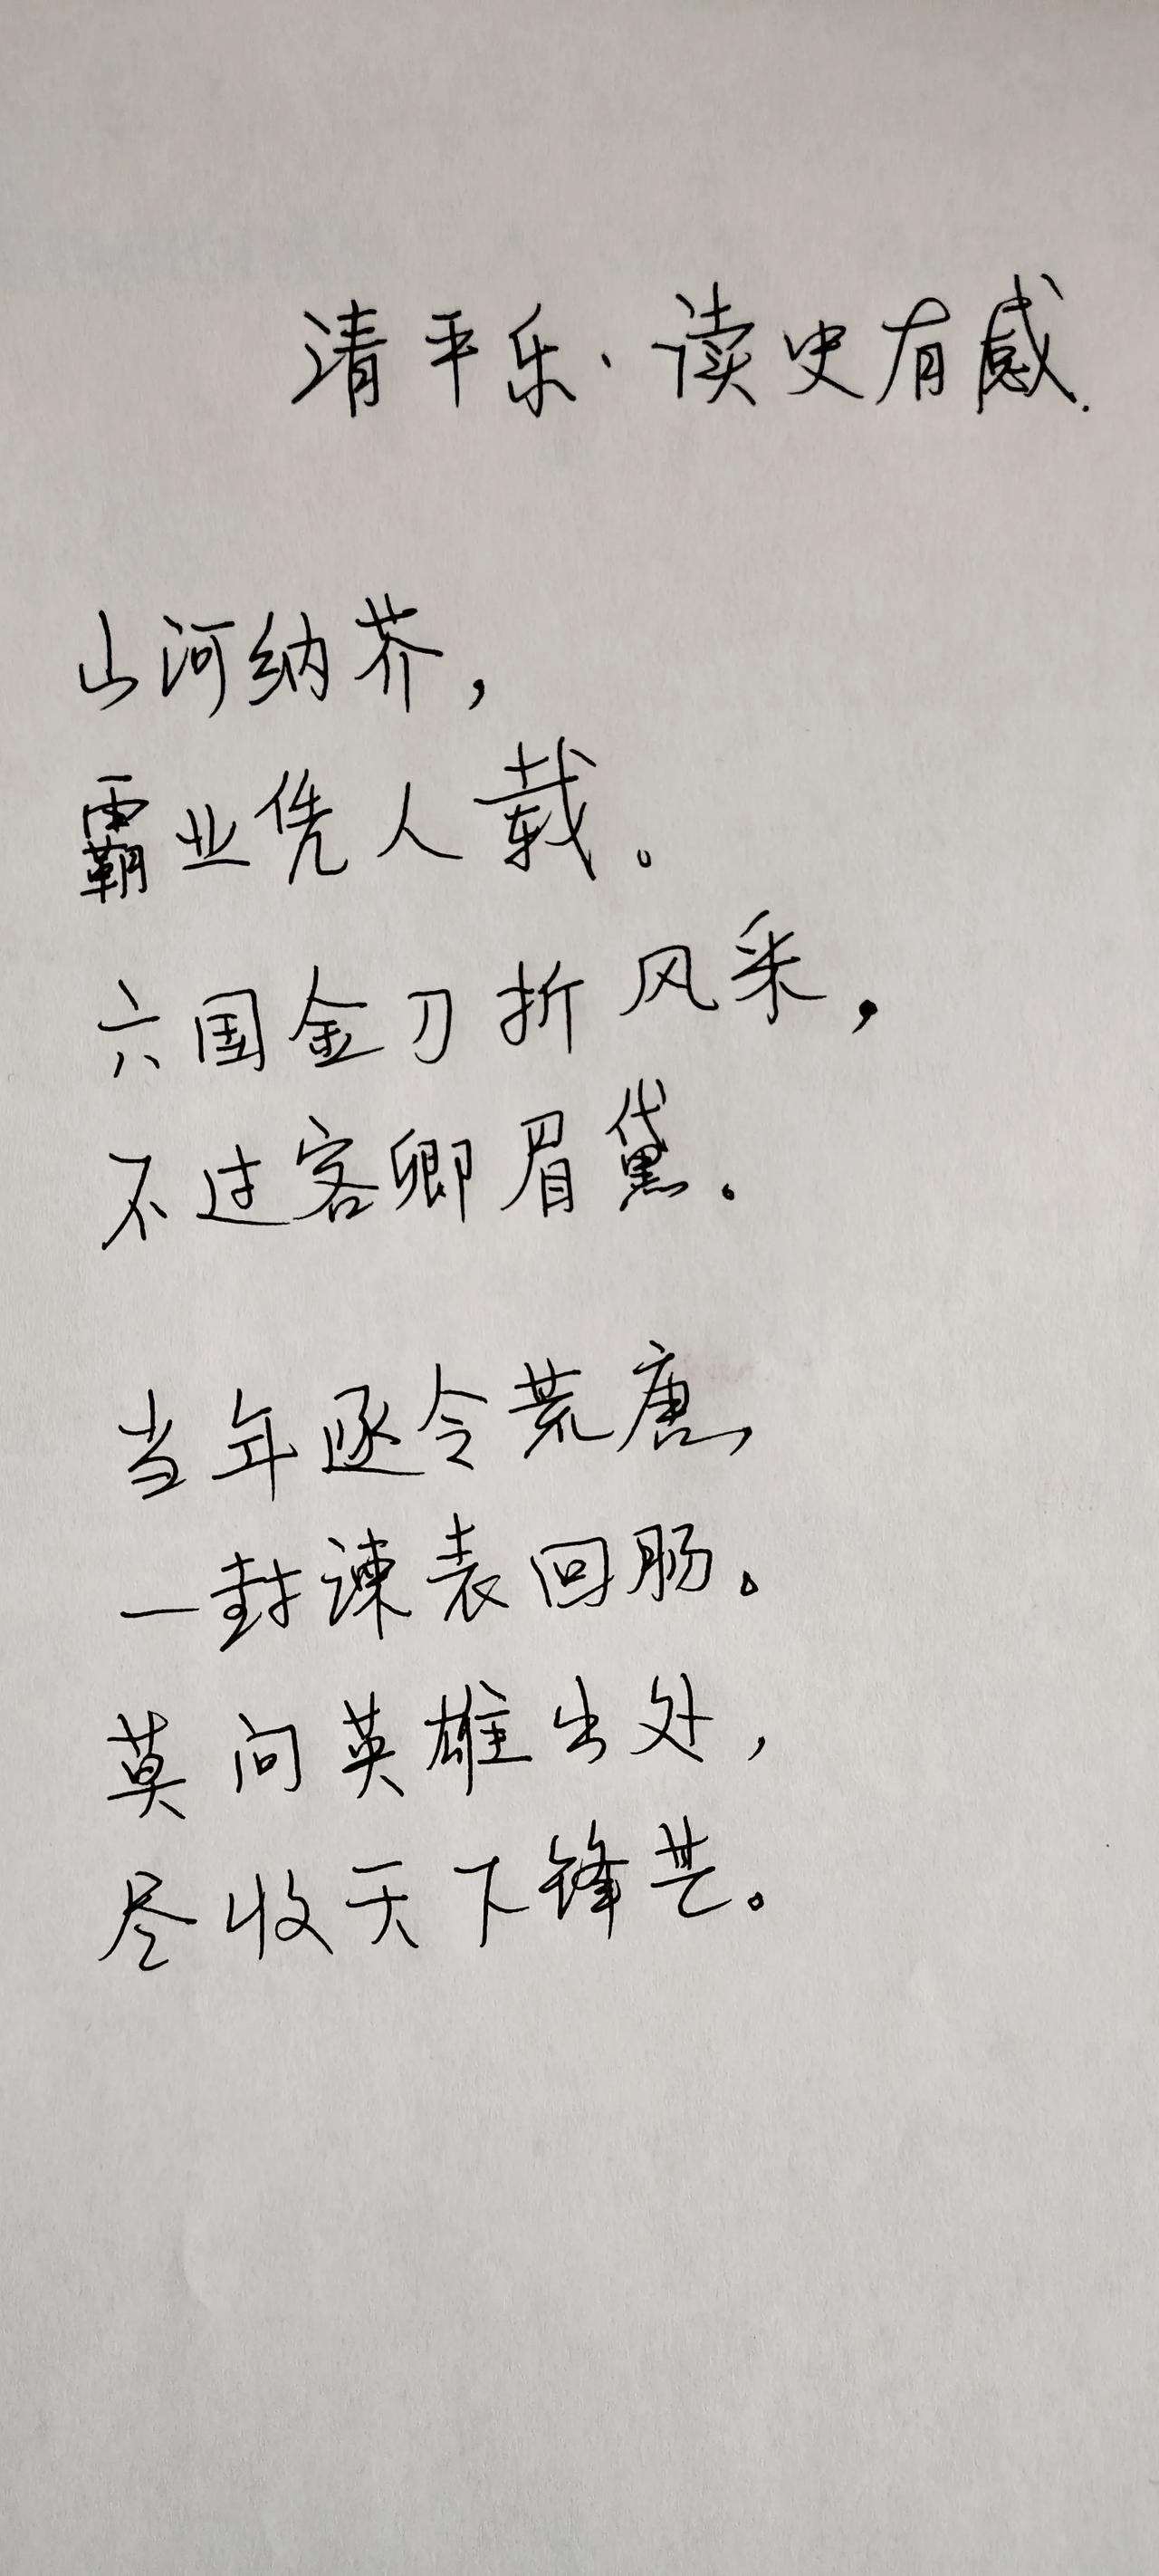 清平乐·读史有感.
山河纳芥，
霸业凭人载。
六国金刀折风采，
不过客卿眉黛。
当年逐令荒唐，
一封谏表回肠。
莫问英雄出处，
尽收天下锋芒。